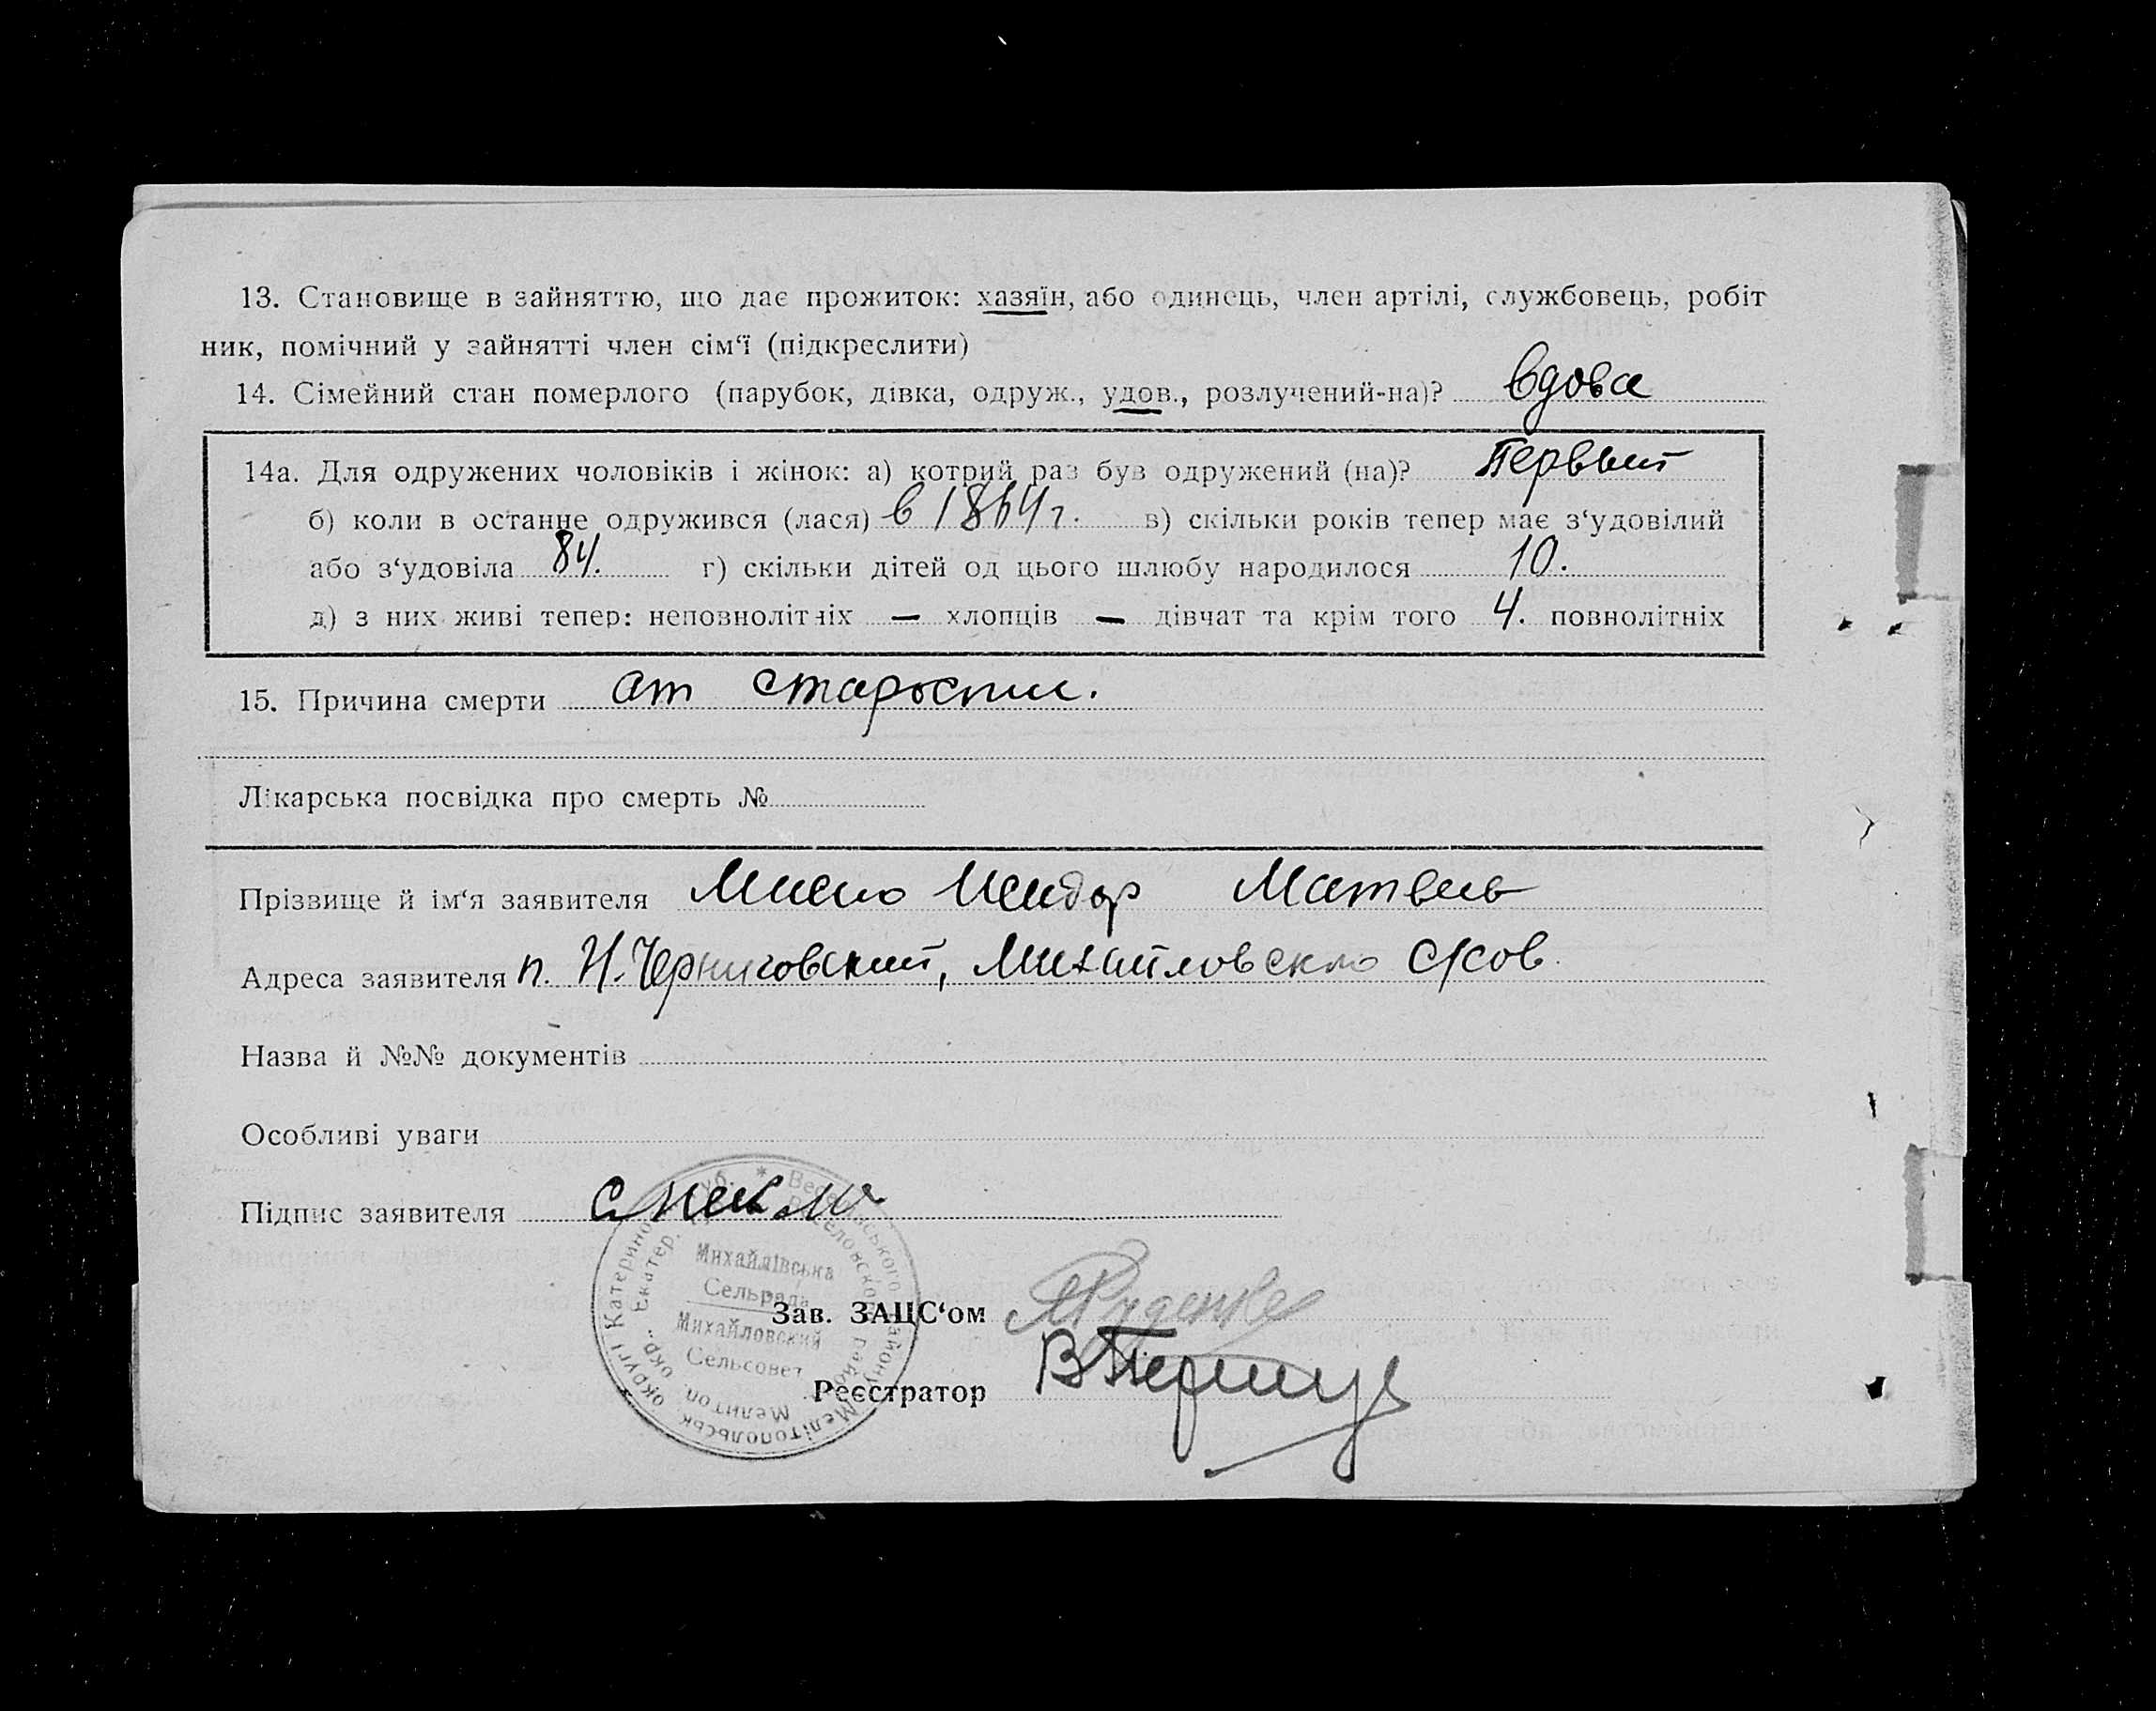 13. Становище в зайняттю, що дає прожиток: хазяїн, або одинець, член артілі, службовець, робіт
ник, помічний у зайнятті член сім‘ї (підкреслити)
14. Сімейний стан померлого (парубок, дівка, одруж., удов., розлучений-на)? Вдова
14а. Для одружених чоловіків і жінок: а) котрий раз був одружений (на)? Первый
б) коли в останнє одружився (лася) в 1864 г. в) скільки років тепер має з‘удовілий
або з‘удовіла 84. г) скільки дітей од цього шлюбу народилося 10.
д) з них живі тепер: неповнолітніх — хлопців — дівчат та крім того 4. повнолітніх
15. Причина смерти от старости.
Лікарська посвідка про смерть №
Прізвище й ім‘я заявителя Матвев
Адреса заявителя п. Н. Черниговский, Михайловскло
Назва й №№ документів
Особливі уваги
Підпис заявителя
Михайлівська
Сельрада
Михайловский
Сельсовет
Зав. ЗАЦС‘ом Руденко
Реєстратор